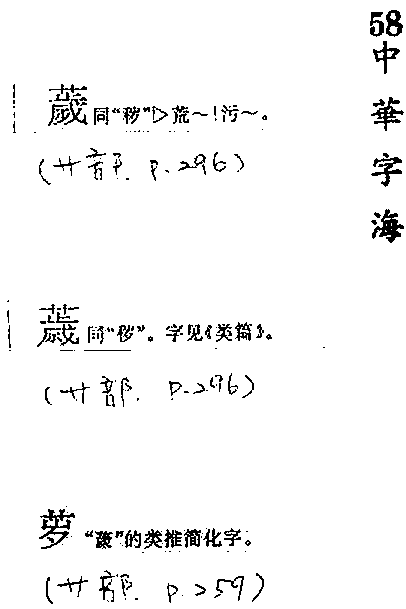 58
中華字海
薉 同“秽”▷荒～！污～。
(艹部. P.296)
同“秽”。字见《类篇》。
(艹部. P.296)
“薉”的类推简化字。
(艹部. P.259)